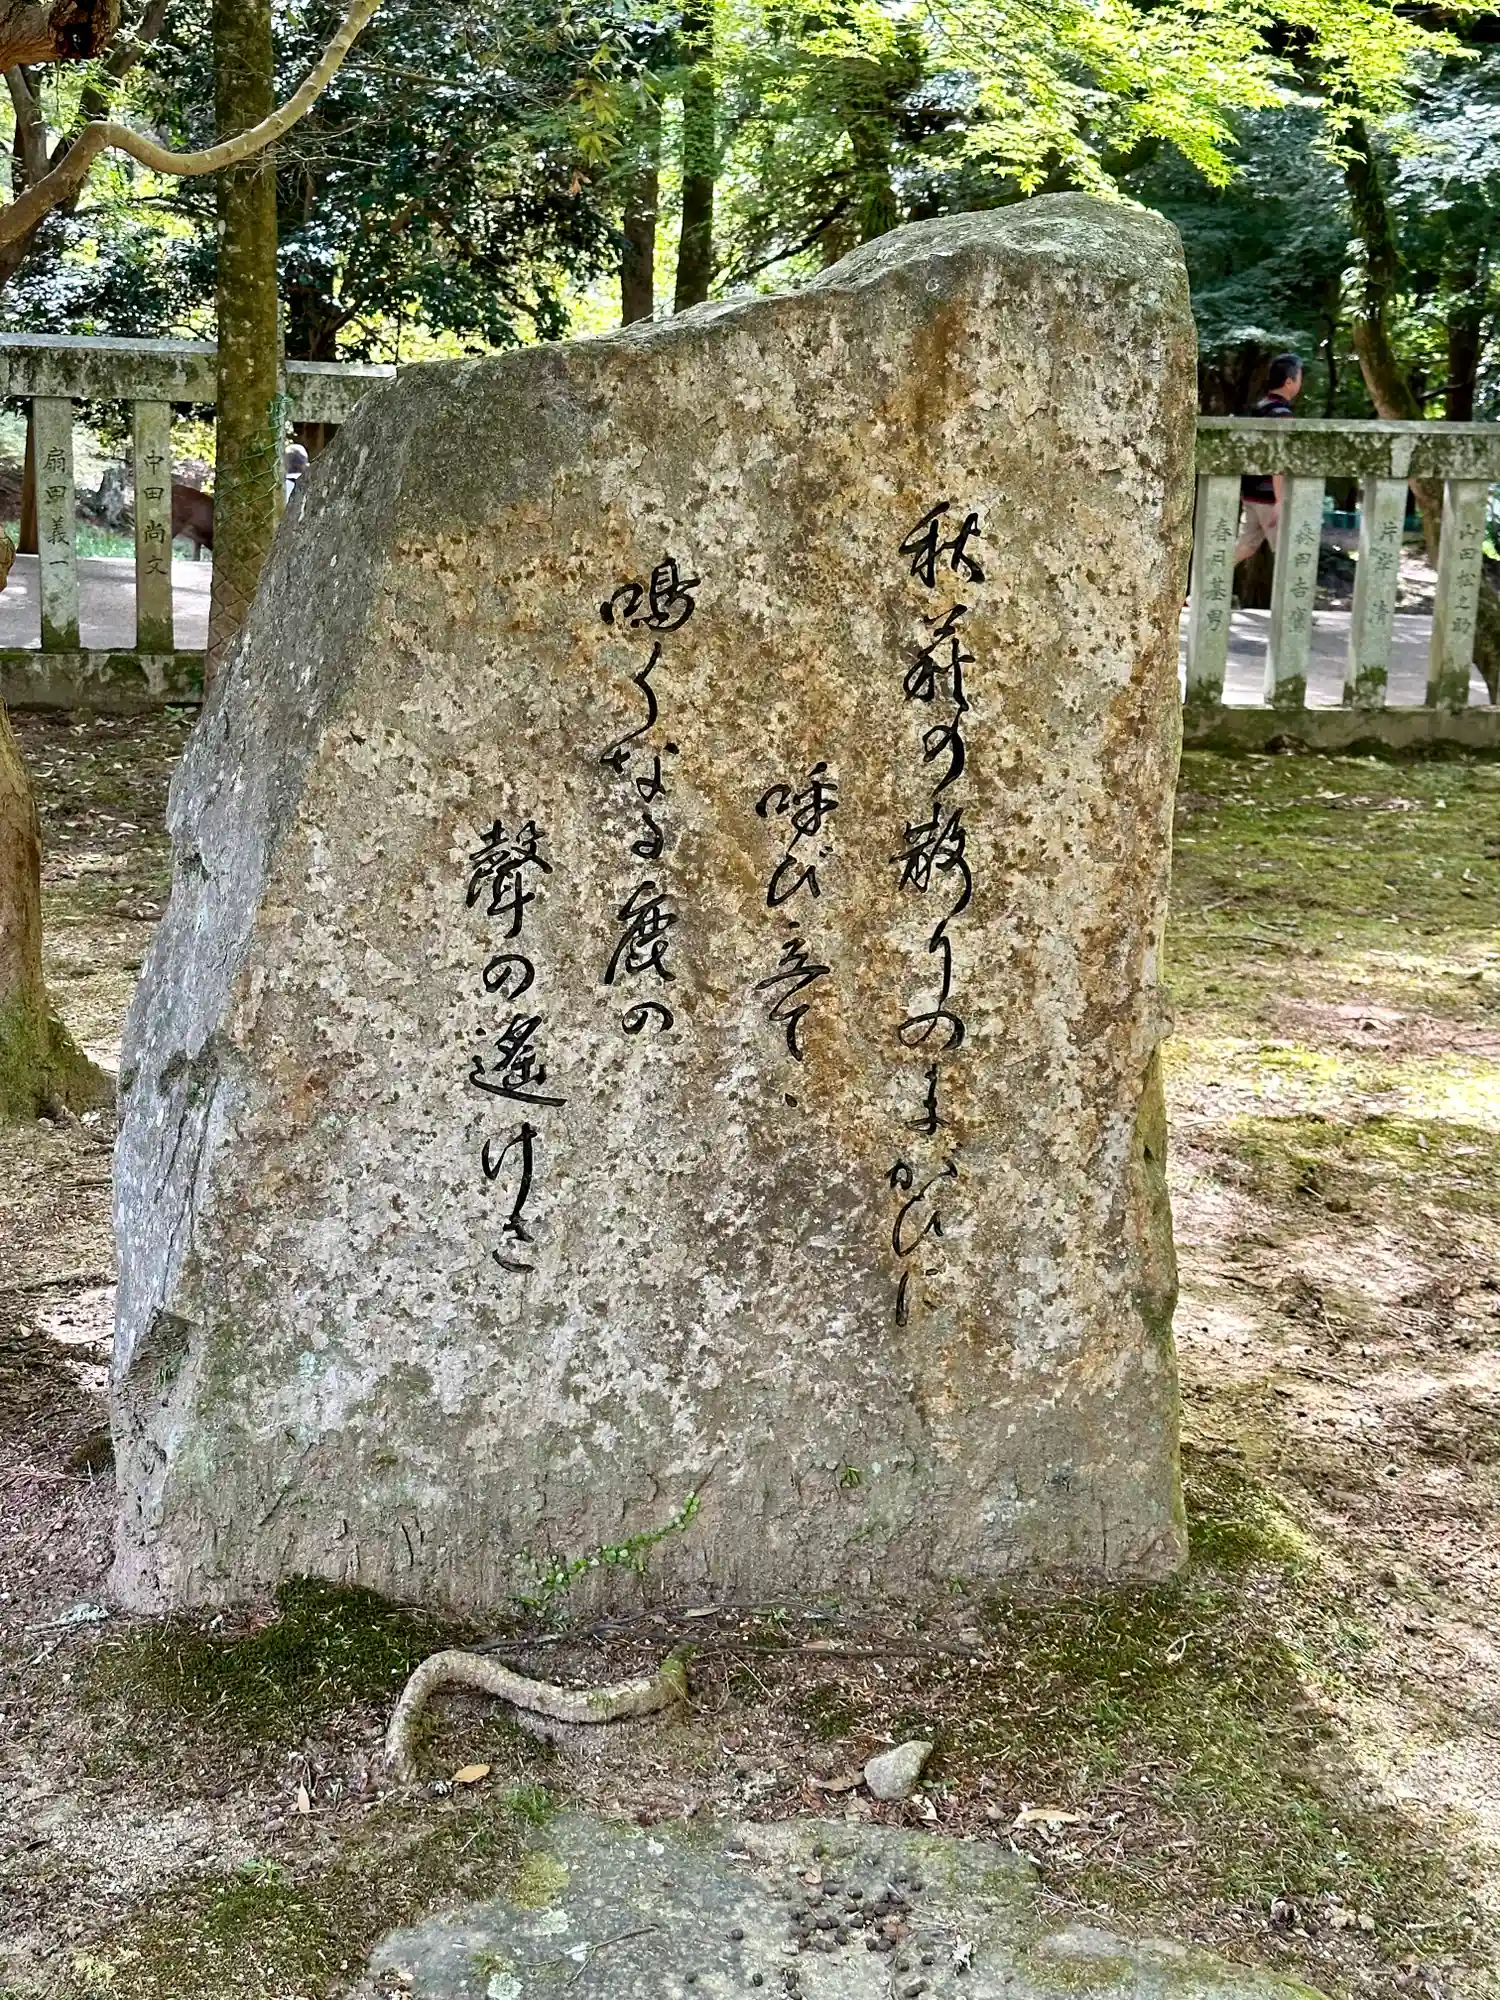 秋萩の散りのまがひに
呼び立てゝ
鳴くなる鹿の
聲の遙けさ
山田松之助
片岸清
森田吉
春日基男
中田尚文
扇田義一